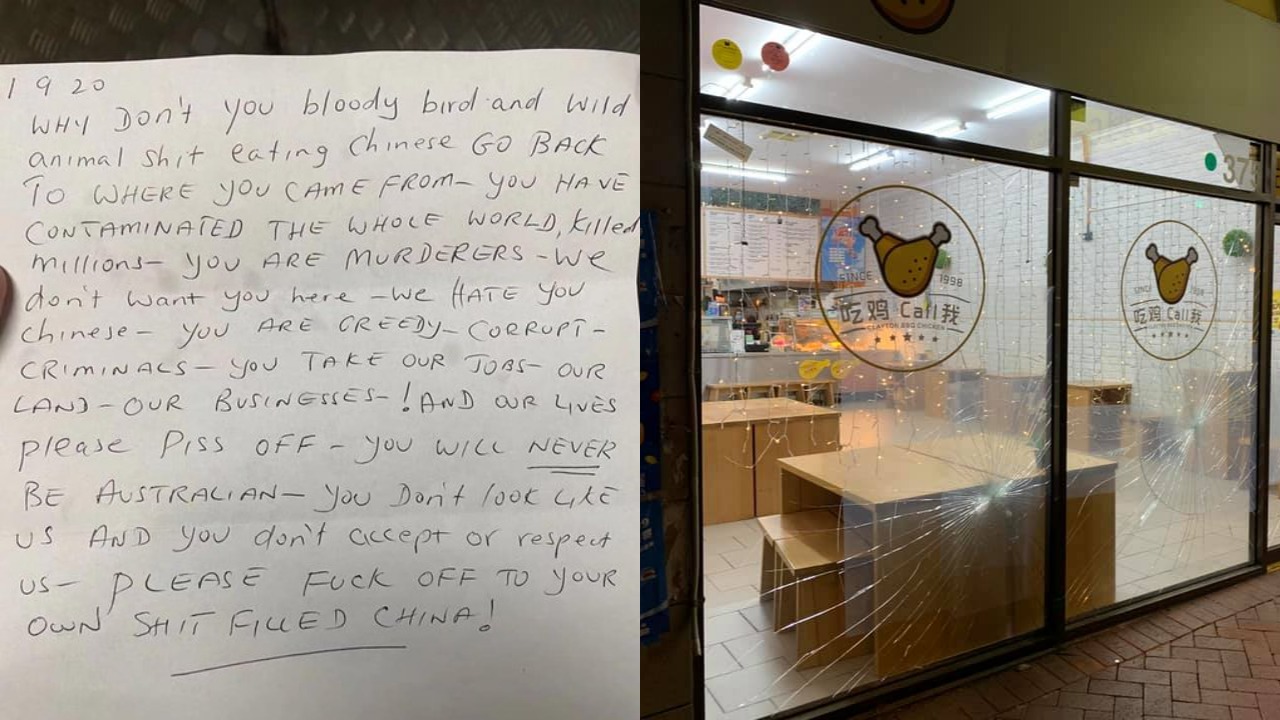 1 9 20
WHY Don't you bloody bird and wild
animal shit eating Chinese GO BACK
TO WHERE YOU CAME FROM- YOU HAVE
CONTAMINATED THE WHOLE WORLD, killed
millions- YOU ARE MURDERERS - We
don't want you here - we HATE YOU
Chinese - YOU ARE GREEDY- CORRUPT -
CRIMINALS - YOU TAKE OUR JOBS- OUR
LAND - OUR BUSINESSES - ! AND OUR LIVES
please PISS OFF - YOU WILL NEVER
BE AUSTRALIAN - YOU Don't look LIKE
US AND YOU don't accept or respect
us - PLEASE FUCK OFF TO YOUR
OWN SHIT FILLED CHINA!
375
SINCE 1998
吃鸡 Call我
CLAYTON BBQ CHICKEN
吃鸡 Call我